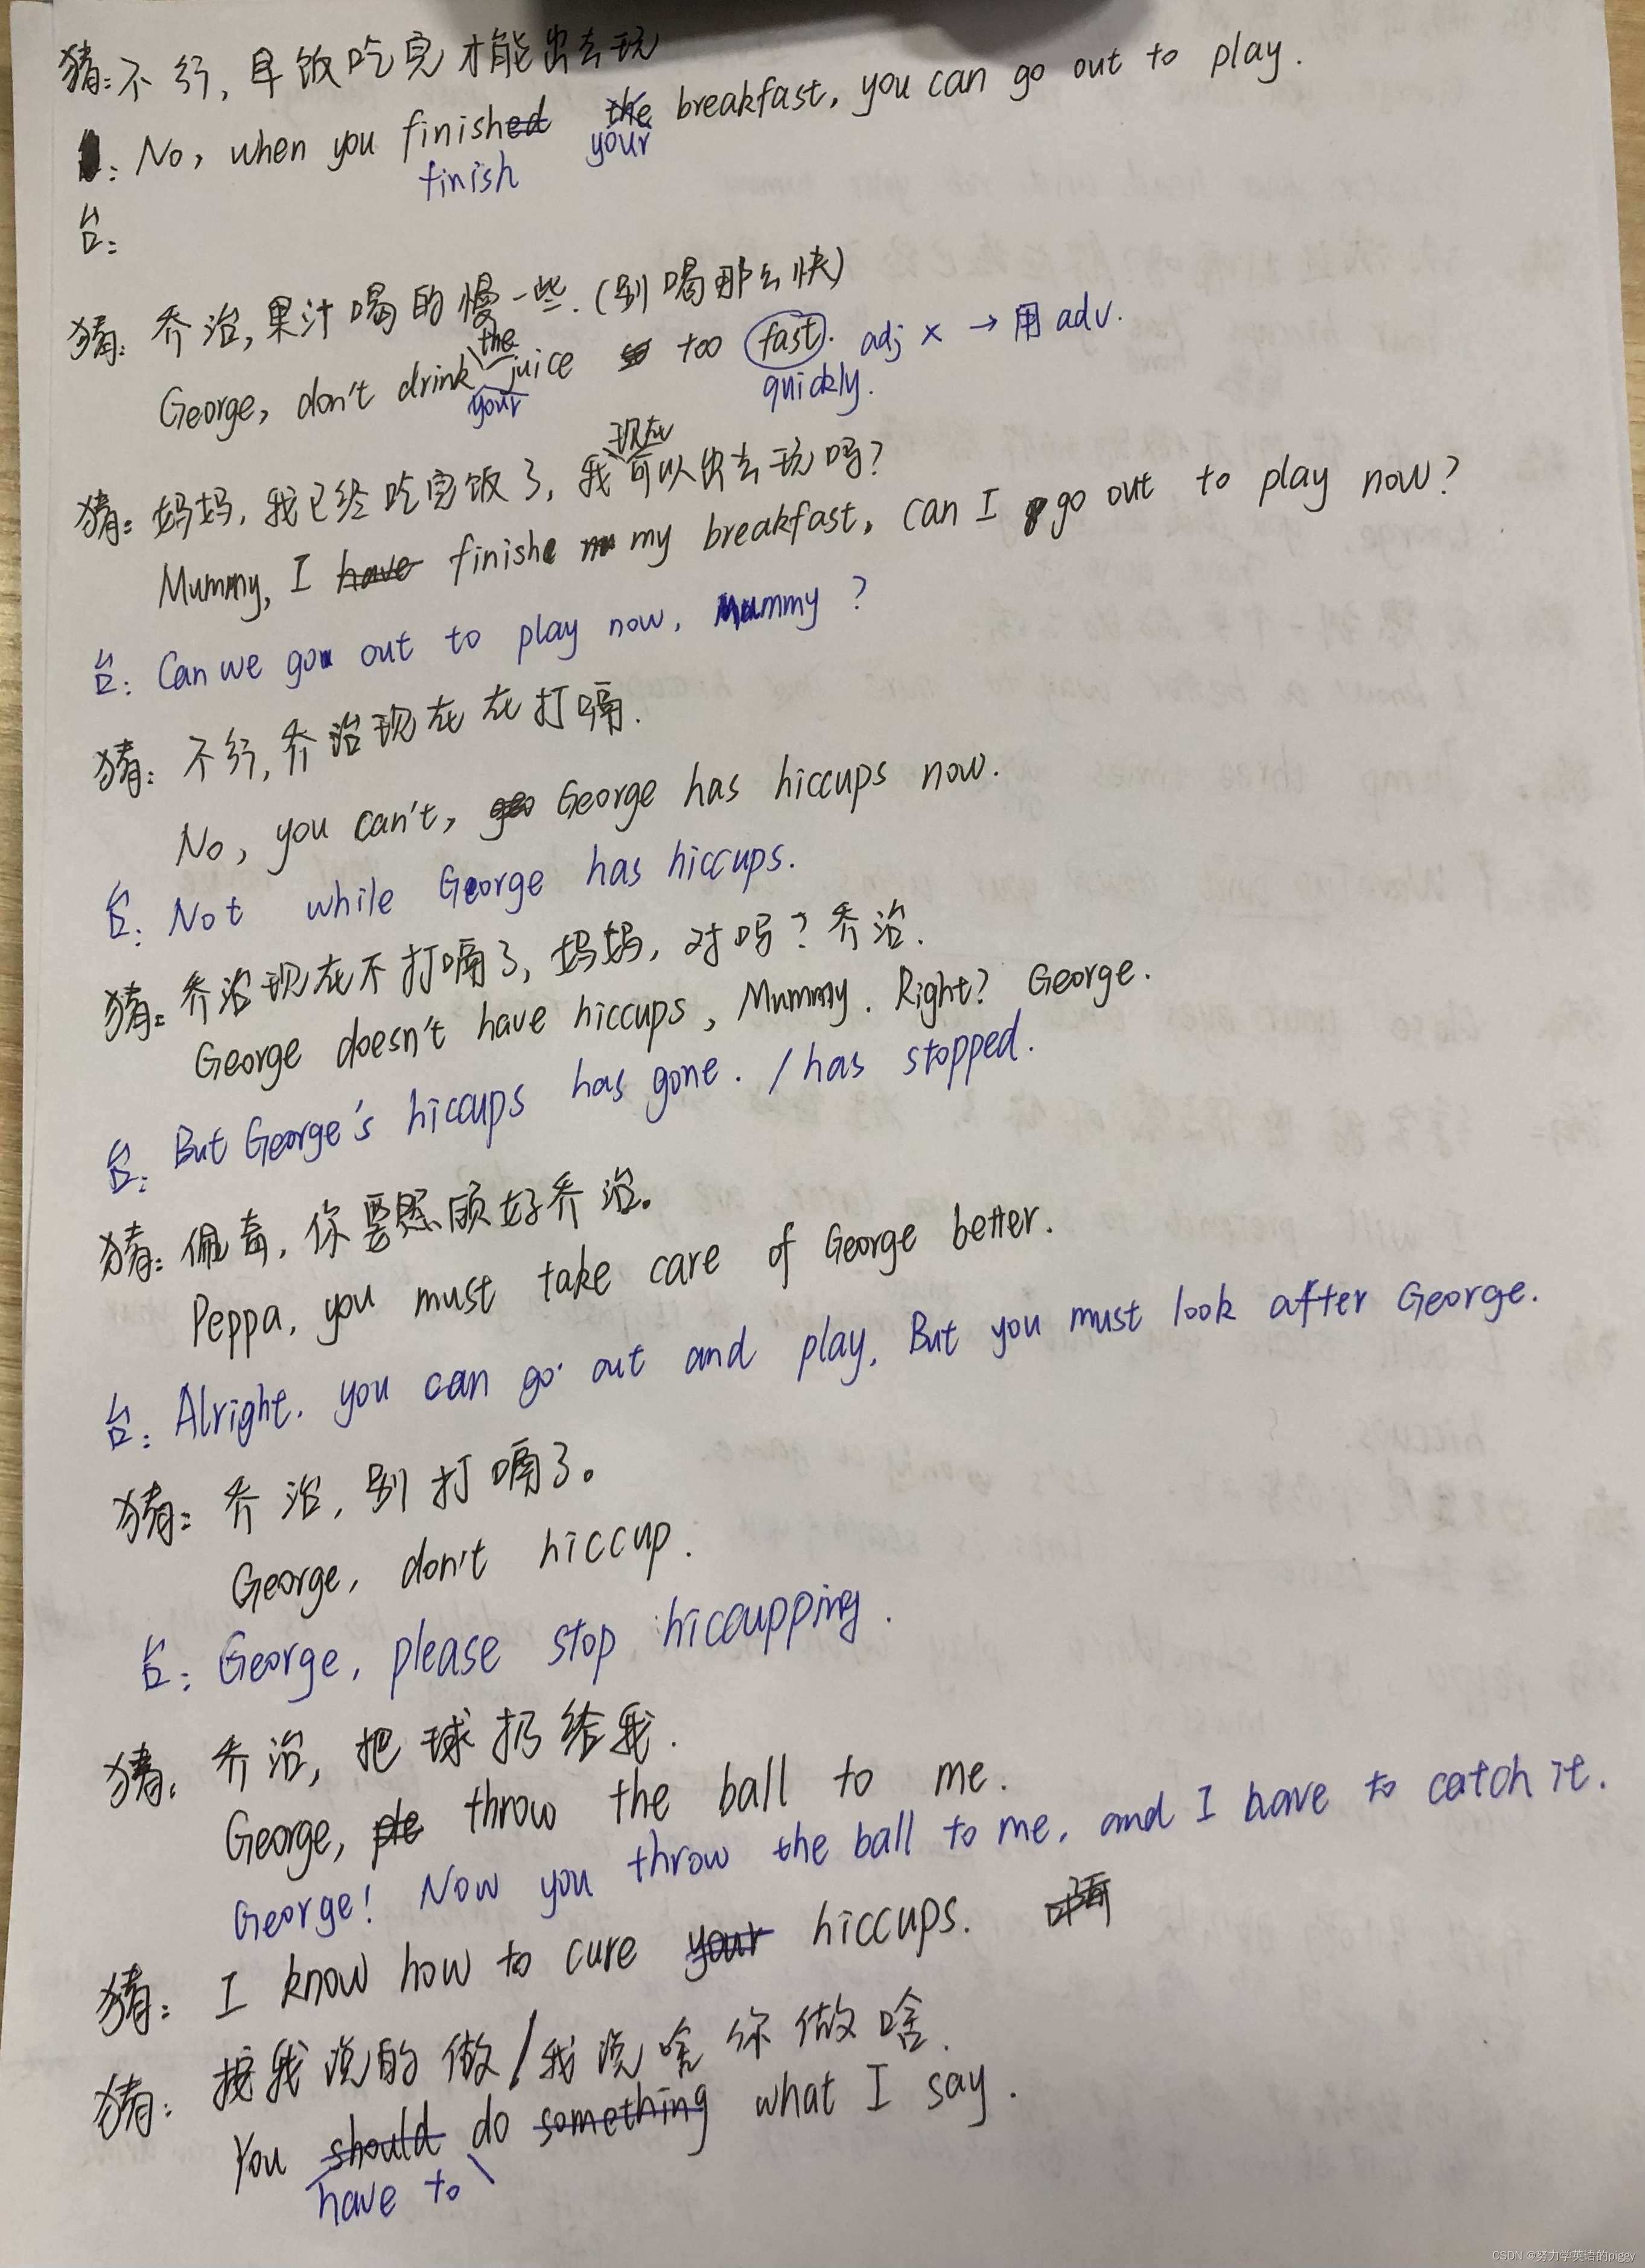 猪:不行,早饭吃完才能出去玩
: No, when you finished the breakfast, you can go out to play.
finish your
台:
猪:乔治,果汁喝的慢一些.(别喝那么快)
the
George, don't drink juice too fast. adj × → 用 adv.
your quickly.
现在
猪:妈妈,我已经吃完饭了,我可以出去玩吗?
Mummy, I have finishe my breakfast, can I go out to play now?
台: Can we go out to play now, Mummy?
猪:不行,乔治现在在打嗝.
No, you can't, geo George has hiccups now.
台: Not while George has hiccups.
猪:乔治现在不打嗝了,妈妈,对吗?乔治.
George doesn't have hiccups, Mummy. Right? George.
台: But George's hiccups has gone. / has stopped.
猪:佩奇,你要照顾好乔治。
Peppa, you must take care of George better.
台: Alright. you can go out and play, But you must look after George.
猪:乔治,别打嗝了。
George, don't hiccup.
台: George, please stop hiccupping.
猪:乔治,把球扔给我.
George, ple throw the ball to me.
George! Now you throw the ball to me, and I have to catch it.
猪: I know how to cure your hiccups.
猪:按我说的做/我说啥你做啥.
You should do something what I say.
have to
CSDN @努力学英语的piggy